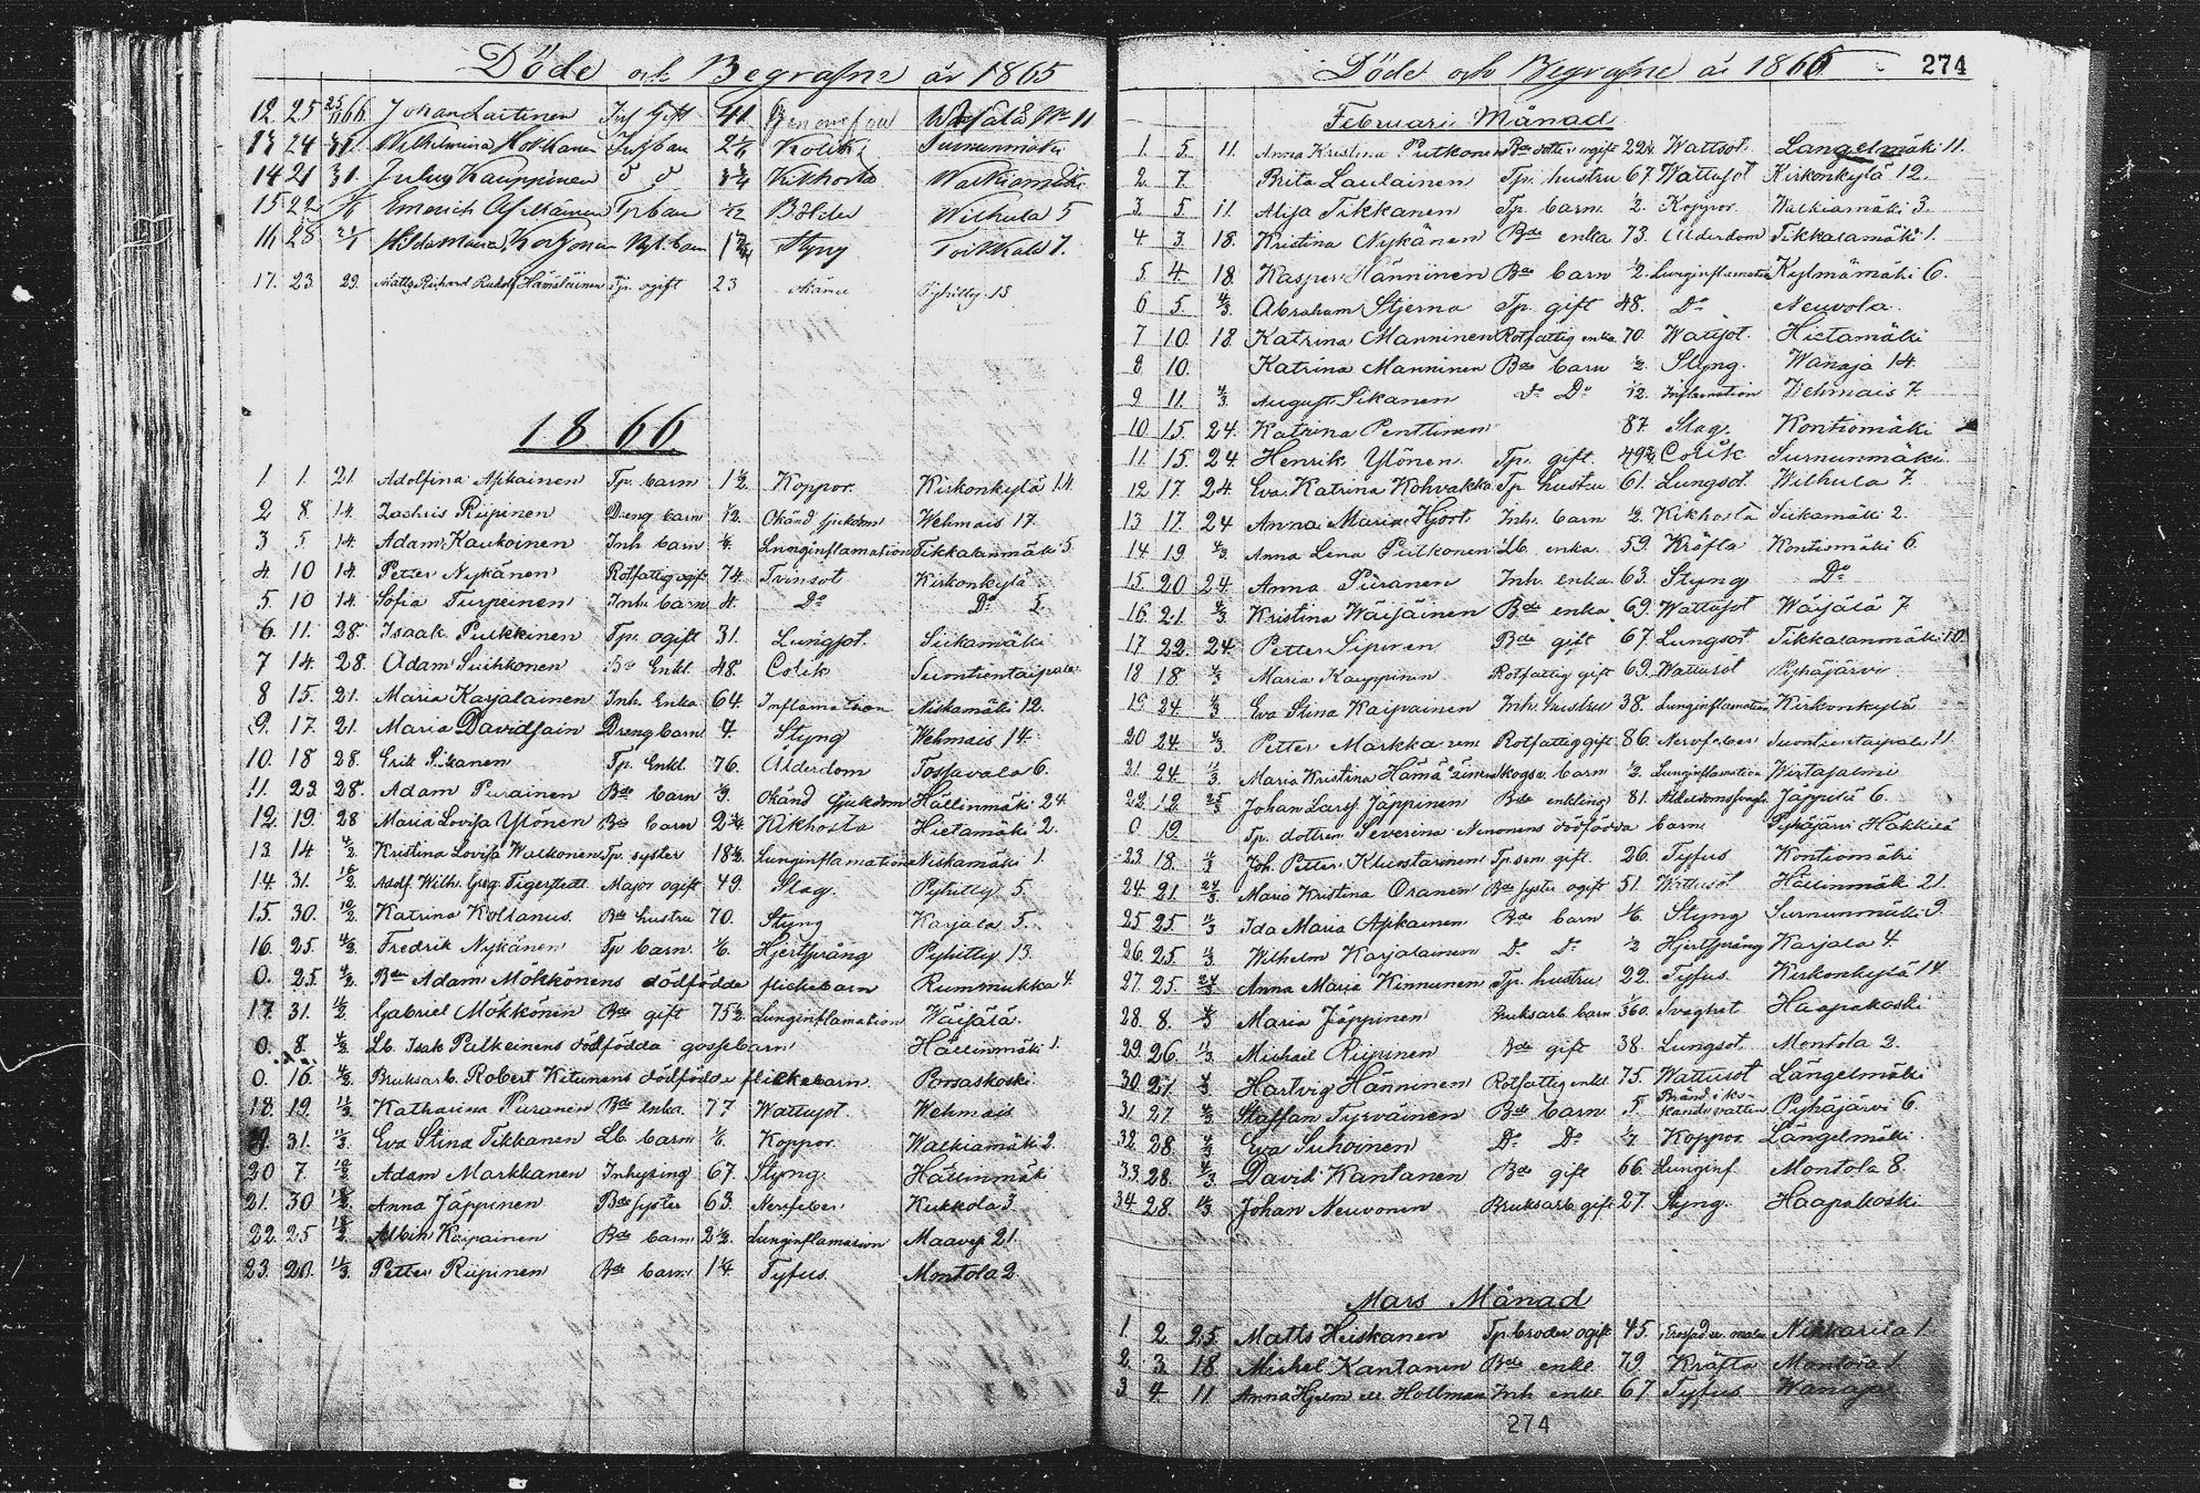 Döde och Begrafne år 1865
12 25 25/11 66 Johan Laitinen Inh Gift 41 Wärälä No 11
13 24 Wilhelmina Kolik Surnunmäki
14 21 31. Julius Kauppinen d d Kikhosta Walkiamäki
15 22 Emerich Tp barn 1/12 Bölder Wilhula 5
16 28 21/1 Korhonen barn Styng 7.
17. 23 29. Matts Richard Rudolf Hämäläinen Tp. ogift 23 Pyhitty 13
1866
1 1. 21. Adolfina Apkainen Tp. barn 1 1/2 Koppor. Kirkonkylä 14.
2 8 14. Zachris Riipinen Dreng barn 1/2. Okänd sjukdom Wehmais 17.
3 5 14. Adam Kaukoinen Inh. barn Lunginflamation Tikkalanmäki 5
4. 10 14. Petter Nykänen Rotfattig ogift 74. Tvinsot Kirkonkylä
5. 10 14. Sofia Turpeinen Inh. barn 4. Do Do 5.
6. 11. 28. Isaak Pulkkinen Tp. ogift 31. Lungsot. Siikamäki
7 14. 28. Adam Suihkonen Enkl. 48. Colik Suontientaipale
8 15. 21. Maria Karjalainen Inh. Enka 64. Inflamation Niskamäki 12.
9. 17. 21. Maria Davidsain Dreng barn 4. Styng Wehmais 14.
10. 18 28. Erik Tp. Enkl. 76. Ålderdom Tossavala 6.
11. 23. 28. Adam Purainen Bde barn 1/3. Okänd sjukdom Hällinmäki 24.
12. 19. 28 Maria Lovisa Ylönen Bde barn 2 1/4. Kikhosta Hietamäki 2.
13 14 4/2 Kristina Lovisa Walkonen Tp. syster 18 1/2. Lunginflamation Niskamäki 1.
14. 31. 18/2. Adolf. Wilh. Greg. Tigerstedt. Major ogift 49. Slag. Pyhitty. 5.
15. 30. 18/2. Katrina Kollanus. Bde hustru 70. Styng Karjala 5.
16. 25. 4/2. Fredrik Nykänen Tp barn. 1/6. Hjertsprång Pyhitty 13.
0. 25. 4/2. Bde Adam Mökkönens dödfödda flickebarn Rummukka 4.
17. 31. 11/2. Gabriel Mökkönen Bde gift 75 1/2. Lunginflamation Wäijälä.
0. 8. 4/2. Lb. Isak Palkeinens dödfödda gossebarn Hällinmäki 1.
0. 16. 4/2. Bruksarb. Robert Kitunens dödfödda flickebarn. Porsaskoski
18. 19. 11/3. Katharina Puranen Bde enka. 77 Wattusot. Wehmais
31. 11/3. Eva Stina Tikkanen Lb. barn 1/6. Koppor. Walkiamäki 2.
20 7. 18/2. Adam Markkanen Inhysing 67. Styng. Hällinmäki
21. 30 18/2. Anna Jäppinen Bde syster 63. Nervfeber Kukkola 3.
22. 25 18/2 Albin Kaipainen Bde barn 2 1/2. Lunginflamation Maavesi 21.
23. 20. 11/3. Petter Riipinen Bde barn 1 1/4. Tyfus. Montola 2
Döde och Begrafne år 1866 274
Februari Månad
1. 5. 11. Anna Kristina Putkonen Bde dotter ogift 22 Wattsot. Längelmäki 11.
2. 7. Brita Laulainen Tp. hustru 67. Wattusot Kirkonkylä 12.
3. 5. 11. Alisa Tikkanen Tp. barn. 1/2. Koppor. Walkiamäki 3.
4 3. 18. Kristina Nykänen Bde enka 73. Ålderdom Tikkalamäki 1.
5. 4. 18. Kasper Hänninen Bde barn 1/2. Lunginflamation Kylmämäki 6.
6 5. 4/3. Abraham Stjerna Tp. gift 48. Do Neuvola.
7 10. 18. Katrina Manninen Rotfattig enka 70. Wattsot. Hietamäki
8 10. Katrina Manninen Bde barn 1/2. Styng. Wanaja 14.
9 11. 4/3. August Sikanen Do Do 1/2. Inflamation Wehmais 7.
10 15. 24. Katrina Penttinen 87. Slag. Kontiomäki
11. 15. 24. Henrik Ylönen. Tp. gift. 49 Colik Surnunmäki.
12 17. 24. Eva Katrina Kohvakka Tp hustru 61. Lungsot. Wilhula 7.
13. 17. 24 Anna Maria Hjort Inh. barn 1/2. Kikhosta Siikamäki 2.
14 19. 4/3. Anna Lena Pulkonen Lb. enka. 59. Kräfta Kontiomäki 6.
15. 20 24. Anna Puranen Inh. enka. 63. Styng Do
16. 21. 4/3 Kristina Wäijäinen Bde enka 69. Wattusot Wäijälä 7.
17 22. 24. Petter Bde gift 67. Lungsot Tikkalanmäki 10.
18 18. 4/3 Maria Kauppinen Rotfattig gift 69. Wattusot Pyhäjärvi
19 24. 4/3 Eva Stina Kaipainen Inh. hustru 38. Lunginflamation Kirkonkylä
20 24. 4/3. Petter Markkanen Rotfattig gift 86. Nervfeber Suontientaipale 11.
21. 24. 11/3. Maria Kristina Hämäläinen Skogsv. barn 1/2. Lunginflamation Wirtasalmi
22. 12. 25/3 Johan Larss. Jäppinen Bde enkling 81. Ålderdomssvagh. Jäppilä 6.
0 19. Tp. dottren Severina Nenonens dödfödda barn Pyhäjärvi Häkkilä
23. 18. 11/3 Joh. Petter Tp. son gift. 26. Tyfus Kontiomäki
24. 21. 24/3. Maria Kristina Oranen Bde syster ogift 51. Wattusot Hällinmäki 21.
25 25. 11/3 Ida Maria Apkainen Bde barn 1/6. Styng Surnunmäki 9.
26. 25. 11/3. Wilhelm Karjalainen Do Do 1/2 Hjertsprång Karjala 4.
27. 25. 24/3 Anna Maria Kinnunen Tp. hustru 22. Tyfus. Kirkonkylä 14.
28. 8. 4/3 Maria Jäppinen Bruksarb. barn 1/360. Svaghet Haapakoski
29. 26. 11/3 Michael Riipinen Bde gift 38. Lungsot. Montola 2.
30. 27. 4/3 Hartvig Hänninen Rotfattig enkl. 75. Wattusot Längelmäki
31. 27. 4/3 Staffan Tyrväinen Bde barn 5. Bränd i kokande vatten Pyhäjärvi 6.
32. 28. 4/3 Eva Suhoinen Do Do 1/7. Koppor. Längelmäki.
33. 28. 4/3. David Kantanen Bde gift 66. Lunginf. Montola 8.
34. 28. 11/3 Johan Neuvonen Bruksarb. gift 27. Styng. Haapakoski.
Mars Månad
1. 2. 25. Matts Heiskanen Tp broder ogift 45. Nikkarila 1.
2. 3. 18. Michel Kantanen Bde enkl. 79. Kräfta Montola 1.
3. 4. 11 Anna Hjelm ell. Hollman Inh enka 67 Tyfus Wanaja
274